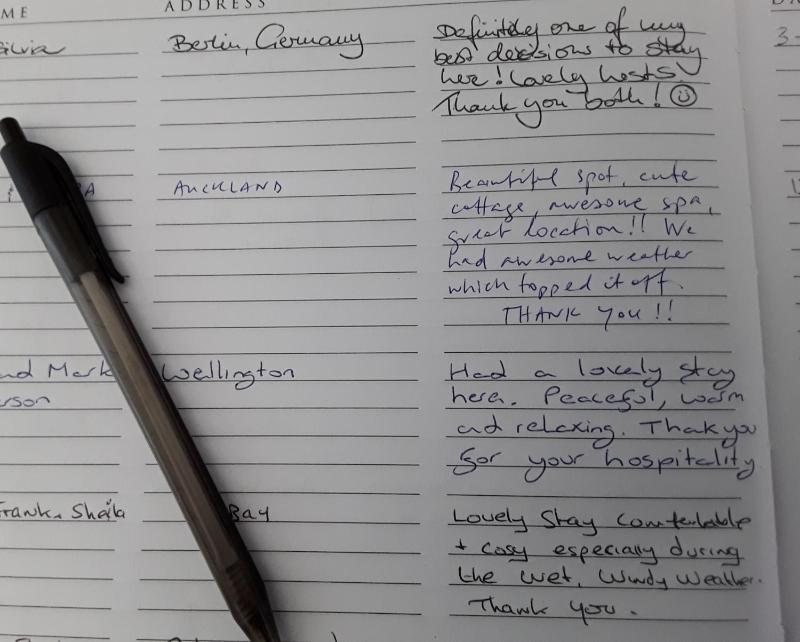 ME ADDRESS
Silvia Berlin, Germany
Definitely one of my
best decisions to stay
here! Lovely hosts!
Thank you both! ☺
AUCKLAND
Beautiful spot, cute
cottage, awesome spa,
great location!! We
had awesome weather
which topped it off.
THANK YOU!!
nd Mark Wellington
rson
Had a lovely stay
here. Peaceful, warm
and relaxing. Thank you
for your hospitality
Frank & Sheila Bay
Lovely Stay Comfortable
+ cosy especially during
the wet, Windy Weather.
Thank you.